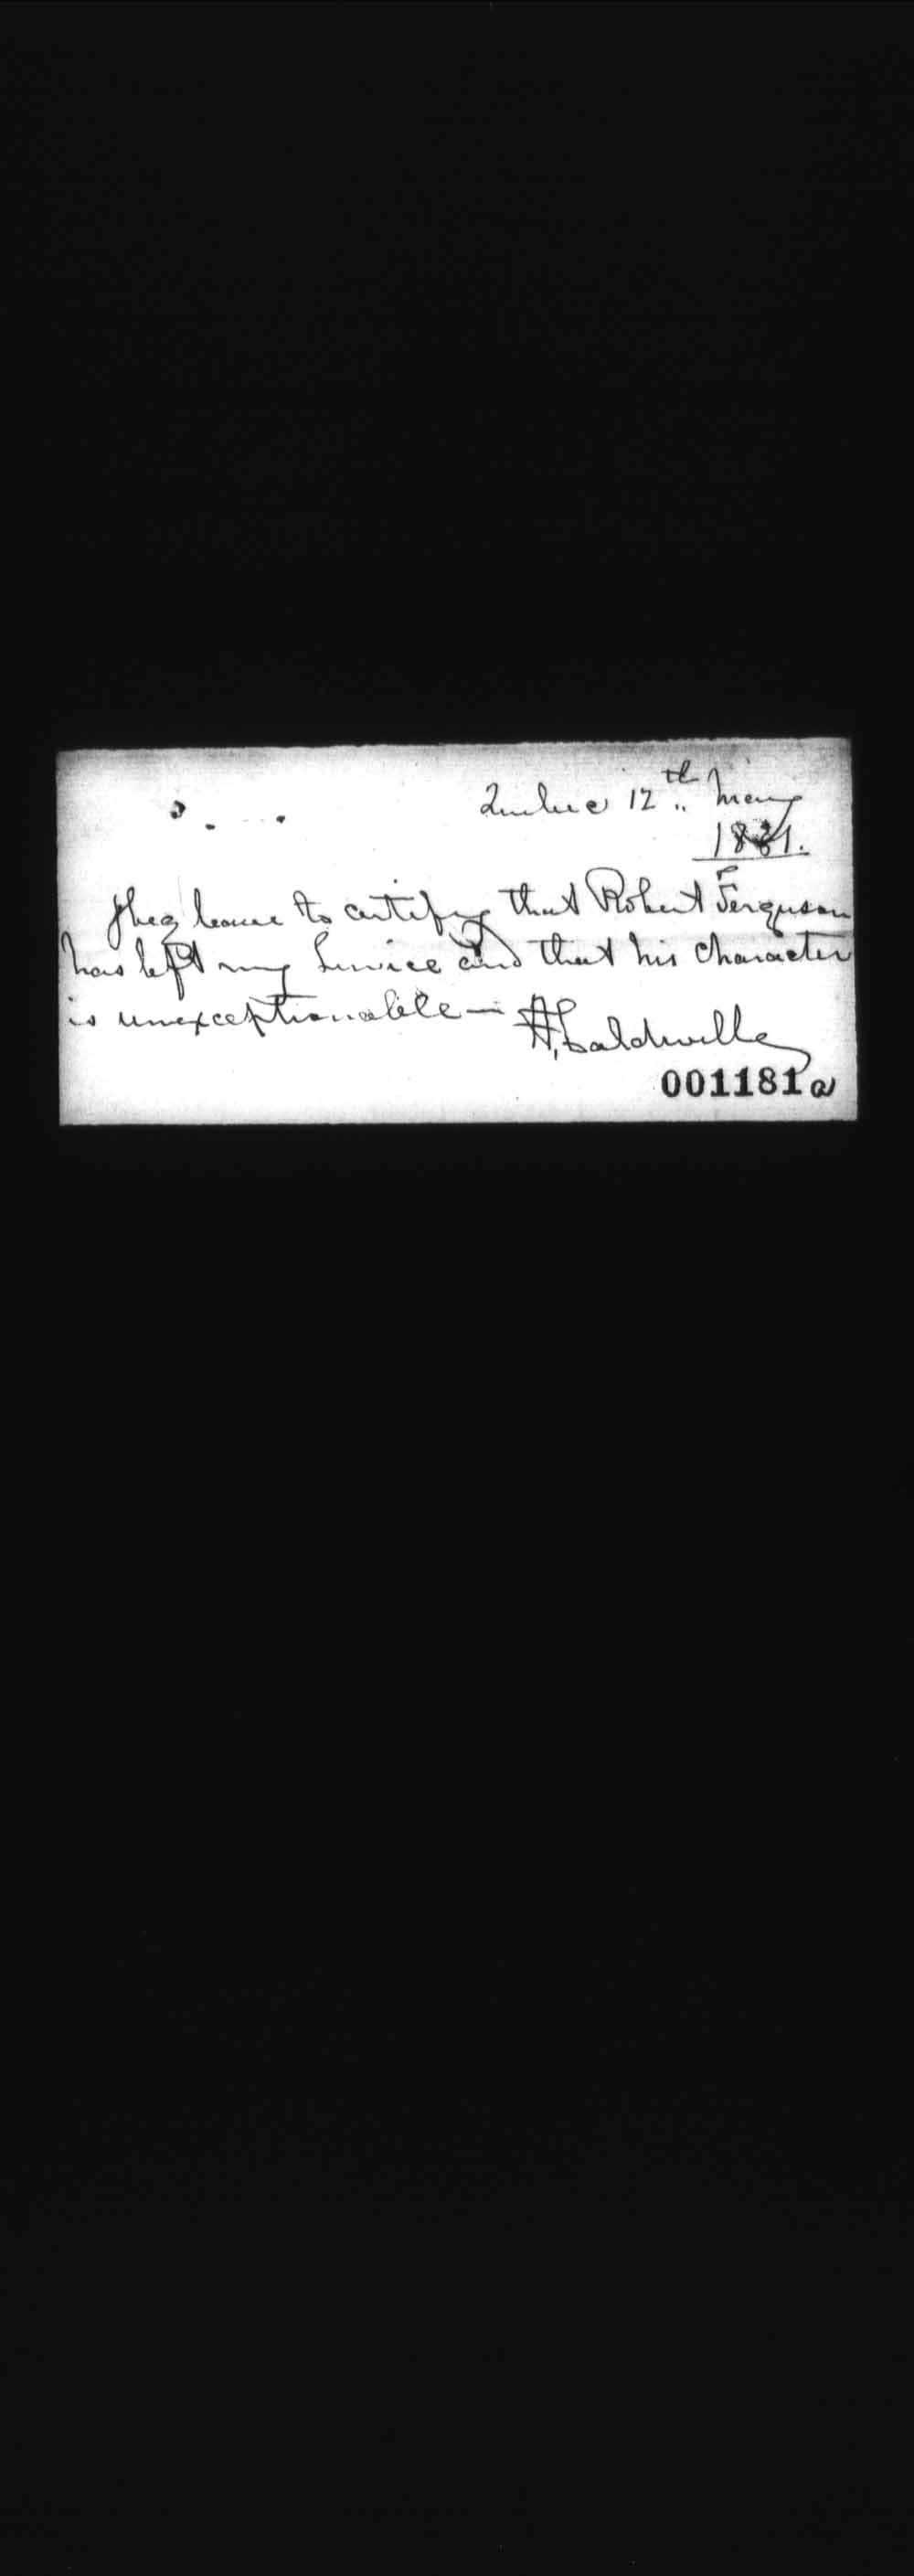 Quebec 12th May
1831.
I beg leave to certify that Robert Ferguson
has left my Service and that his character
is unexceptionable —
H. Caldwell
001181a